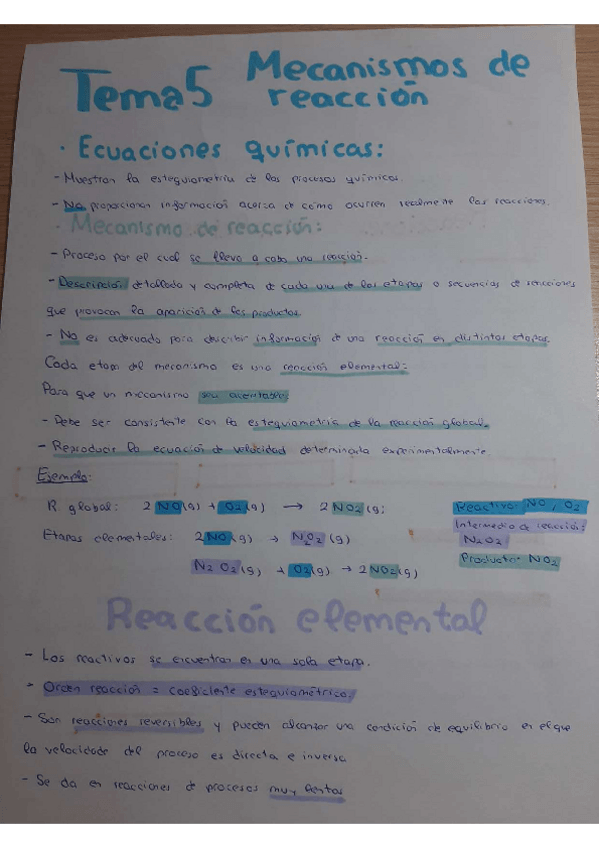 Tema 5 Mecanismos de
reacción
· Ecuaciones químicas:
- Muestran la estequiometría de los procesos químicos.
- No proporcionan información acerca de cómo ocurren realmente las reacciones.
· Mecanismo de reacción:
- Proceso por el cual se lleva a cabo una reacción.
- Descripción detallada y completa de cada una de las etapas o secuencias de reacciones
que provocan la aparición de los productos.
- No es adecuado para describir información de una reacción en distintas etapas.
Cada etapa del mecanismo es una reacción elemental:
Para que un mecanismo sea aceptable:
- Debe ser consistente con la estequiometría de la reacción global.
- Reproducir la ecuación de velocidad determinada experimentalmente
Ejemplo:
R. global: 2 NO(g) + O2(g) → 2 NO2(g)
Reactivo: NO, O2
Intermedio de reacción:
Etapas elementales: 2NO(g) → N2O2(g)
N2O2
N2O2(g) + O2(g) → 2NO2(g)
Producto: NO2
Reacción elemental
- Los reactivos se encuentran en una sola etapa.
- Orden reacción = coeficiente estequiométrico.
- Son reacciones reversibles y pueden alcanzar una condición de equilibrio en el que
la velocidade del proceso es directa e inversa
- Se da en reacciones de procesos muy lentos